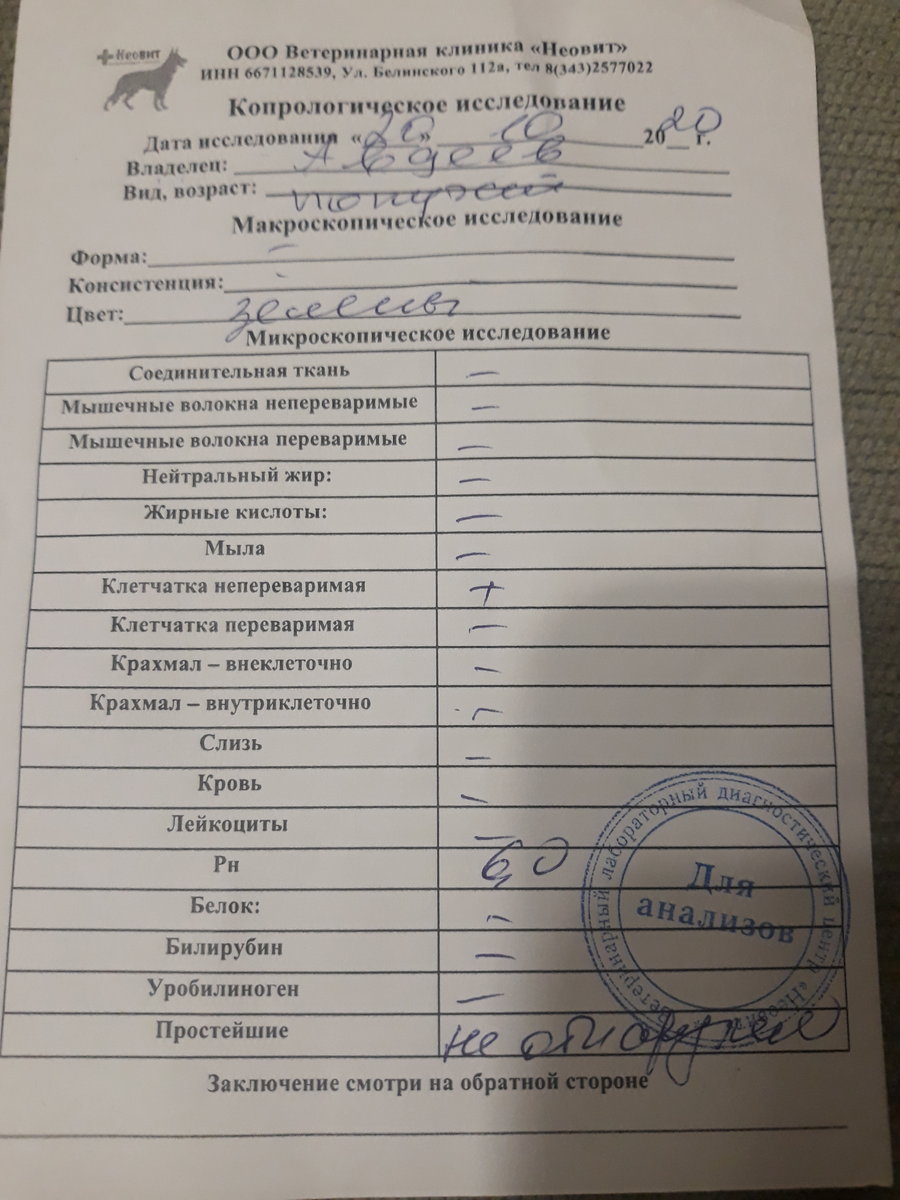 Неовит
ООО Ветеринарная клиника «Неовит»
ИНН 6671128539, Ул. Белинского 112а, тел 8(343)2577022
Копрологическое исследование
Дата исследования «20» 10 2020 г.
Владелец: Авдеев
Вид, возраст: попугай
Макроскопическое исследование
Форма: -
Консистенция: -
Цвет: зелены
Микроскопическое исследование
Соединительная ткань —
Мышечные волокна непереваримые —
Мышечные волокна переваримые —
Нейтральный жир: —
Жирные кислоты: —
Мыла —
Клетчатка непереваримая +
Клетчатка переваримая —
Крахмал – внеклеточно —
Крахмал – внутриклеточно —
Слизь —
Кровь —
Лейкоциты —
Рн 6,0
Белок: —
Билирубин —
Уробилиноген —
Простейшие не
Ветеринарный лабораторный диагностический центр «Неовит»
Для
анализов
Заключение смотри на обратной стороне